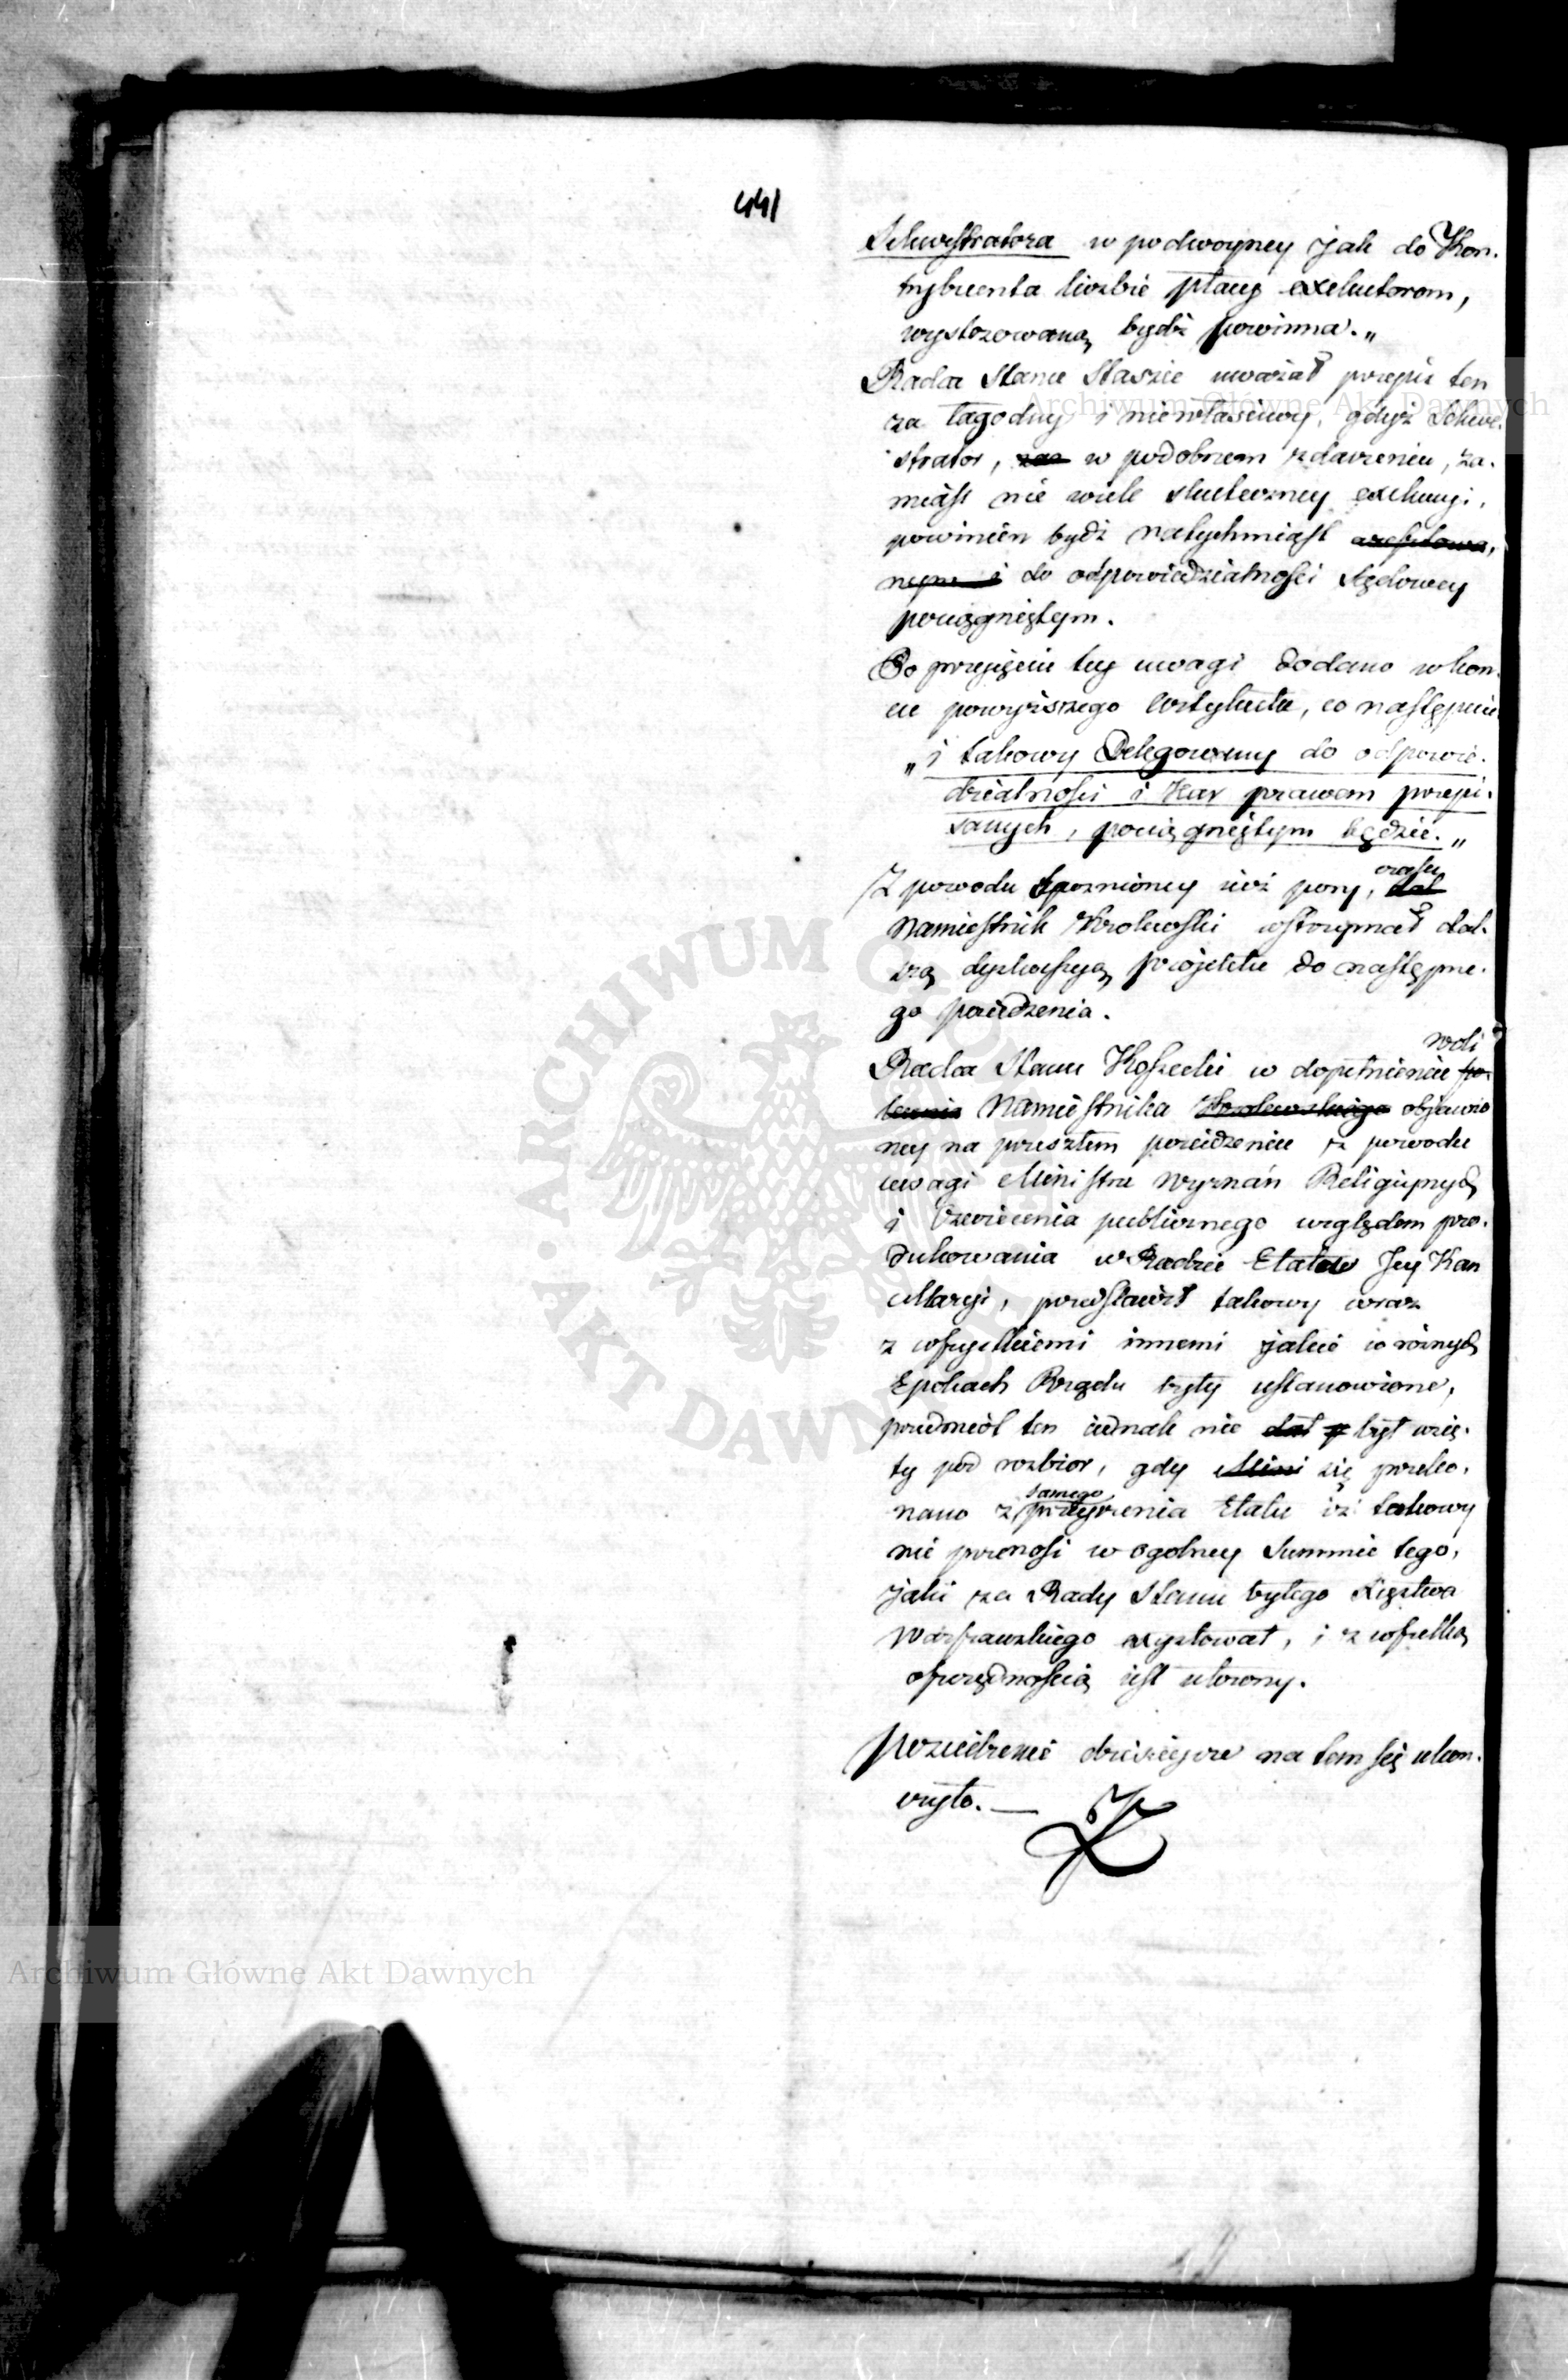 441
Sekwestratora w podwoyney jak do Kon-
trybuenta liczbie płacy exekutorom,
wystosowaną bydź powinna.„
Radca Stanu Staszic uważał przepis ten
za łagodny i niewłaściwy, gdyż Sekwe-
strator, zas w podobnem zdarzeniu, za-
miast nie wiele skuteczney exekucyi,
powinien bydź natychmiast aresztowa-
nym i do odpowiedzialności Sądowey
pociągniętym.
Po przyjęciu tey uwagi dodano w koń-
cu powyższego Artykułu, co następuie
„i takowy Delegowany do odpowie-
dzialności i Kar prawem przepi-
sanych, pociągniętym będzie.„
Z powodu spoznioney iuż pory, czasu
Namiestnik Krolewski wstrzymał dal-
szą dyskussyą projektu do następne-
go posiedzenia.
woli
Radca Stanu Kossecki w dopełnieniu po-
lecenia Namiestnika Krolewskiego objawio
ney na przeszłem posiedzeniu z powodu
uwagi Ministra Wyznań Religiynych
i Oswiecenia publicznego względem pro-
dukowania w Radzie Etatow Jey Kan
cellaryi, przedstawił takowy wraz
z wszystkiemi innemi jakie w roznych
Epokach Rządu były ustanowione,
przedmiot ten iednak nie dał był wzię-
ty pod rozbior, gdy Mini się przeko-
samego
nano z przeyrzenia Etatu iż takowy
nie przenosi w ogolney Summie tego,
jaki za Rady Stanu byłego Xięstwa
Warszawskiego exystował, i z wszelką
oszczędnością iest ułożony.
Posiedzenie dzisieysze na tem się ukoń-
czyło.—
K
Archiwum Główne Akt Dawnych
Archiwum Główne Akt Dawnych
ARCHIWUM GŁÓWNE • AKT DAWNYCH •